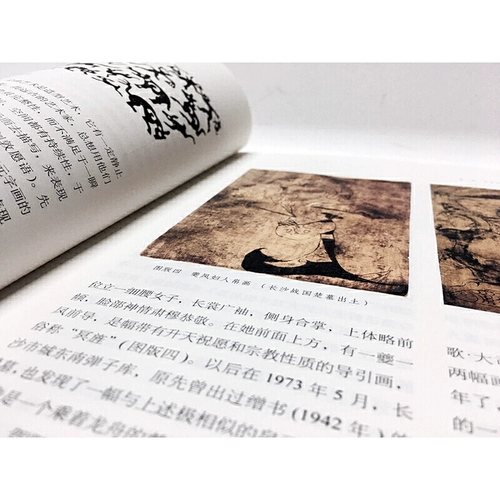 它有一定静止
总想用他们
空间都有持续性，于
而不满足于一瞬
来表现
敦愿语）。先
图版四 夔凤妇人帛画 （长沙战国楚墓出土）
位立一细腰女子，长裳广袖，侧身合掌，上体略前
倾，脸部神情肃穆恭敬。在她前面上方，有一夔一
凤前导，是幅带有升天祝愿和宗教性质的导引画，
俗称“冥旌”（图版四）。以后在1973年5月，长
沙市城东南弹子库，原先曾出过缯书(1942年)的
也发现了一幅与上述极相似的帛
是一个乘着龙舟的
歌·大
两幅画
年了，